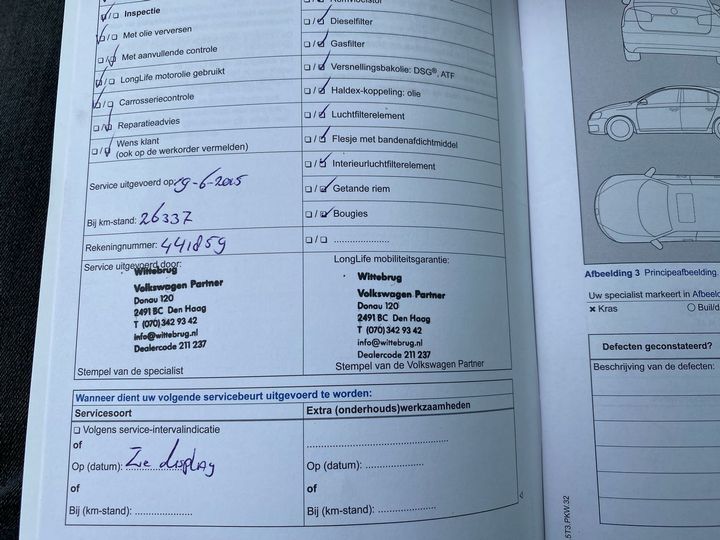 ☑/☐ Inspectie
☑/☐ Met olie verversen
☐/☑ Met aanvullende controle
☑/☐ LongLife motorolie gebruikt
☑/☐ Carrosseriecontrole
☐/☑ Reparatieadvies
☐/☑ Wens klant
(ook op de werkorder vermelden)
Service uitgevoerd op: 19-6-2015
Bij km-stand: 26337
Rekeningnummer: 441859
Service uitgevoerd door:
Wittebrug
Volkswagen Partner
Donau 120
2491 BC Den Haag
T (070) 342 93 42
info@wittebrug.nl
Dealercode 211 237
Stempel van de specialist
☐/☑ Dieselfilter
☐/☑ Gasfilter
☐/☑ Versnellingsbakolie: DSG®, ATF
☐/☑ Haldex-koppeling: olie
☐/☑ Luchtfilterelement
☐/☑ Flesje met bandenafdichtmiddel
☐/☑ Interieurluchtfilterelement
☐/☑ Getande riem
☐/☑ Bougies
☐/☐ .....................
LongLife mobiliteitsgarantie:
Wittebrug
Volkswagen Partner
Donau 120
2491 BC Den Haag
T (070) 342 93 42
info@wittebrug.nl
Dealercode 211 237
Stempel van de Volkswagen Partner
Wanneer dient uw volgende servicebeurt uitgevoerd te worden:
Servicesoort
☐ Volgens service-intervalindicatie
of
Op (datum): Zie display
of
Bij (km-stand): .....................
Extra (onderhouds)werkzaamheden
.....................
Op (datum): .....................
of
Bij (km-stand): .....................
Afbeelding 3 Principeafbeelding.
Uw specialist markeert in
× Kras
Defecten geconstateerd?
Beschrijving van de defecten: